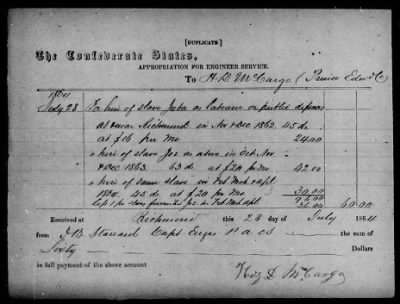 [DUPLICATE.]
The Confederate States,
APPROPRIATION FOR ENGINEER SERVICE.
To H D McCargo (Prince Edwd C)
1864
July 28 For hire of slave John as laborer on public defences
at & near Richmond in Nov & Dec 1862. 45 ds.
at $16 per Mo 24.00
" hire of slave Joe as above in Oct. Nov.
& Dec 1863. 63 ds. at $20 per Mo 42.00
" hire of same slave in Feb Mch & Apl.
1864 45 ds. at $20 per Mo 30.00
96.00
36.00 60.00
Received at Richmond this 28 of July 1864
from J B Stanard Capt Engrs P A C S the sum of
Sixty Dollars
in full payment of the above amount
Hez D McCargo